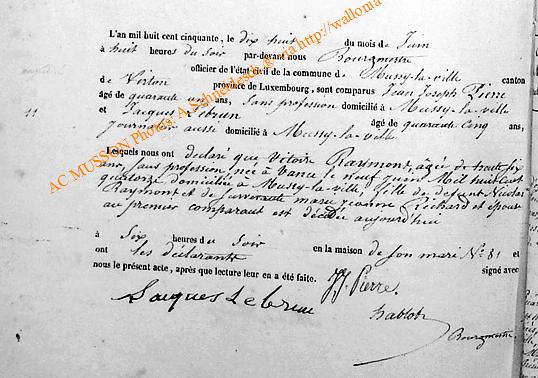 L'an mil huit cent cinquante, le dix huit du mois de Juin
à huit heures du soir par-devant nous Bourgmestre
officier de l'état civil de la commune de Mussy-la-ville canton
de Virton province de Luxembourg, sont comparus Jean Joseph Pierre
âgé de quarante un ans, sans profession domicilié à Mussy-la-ville
11
et Jacques Lebrun âgé de quarante cinq ans,
journalier aussi domicilié à Mussy-la-ville
Lesquels nous ont déclaré que Vitoire Raymont, agée de trente six
ans, sans profession, née à Vance le neuf Mil huit cent
quatorze domiciliée à Mussy-la-ville, fille de defunt Nicolas
Raymont et de survivante marie jeanne Réchard et épouse
au premier comparant est décédée aujourd'hui
à Six heures du Soir en la maison de son mari N° 81 et
ont les déclarants signé avec
nous le présent acte, après que lecture leur en a été faite.
Jacques Lebrun JJ. Pierre.
Bourgmestre
AC MUSSON Photos: A. Schneidesch via http://wallonia